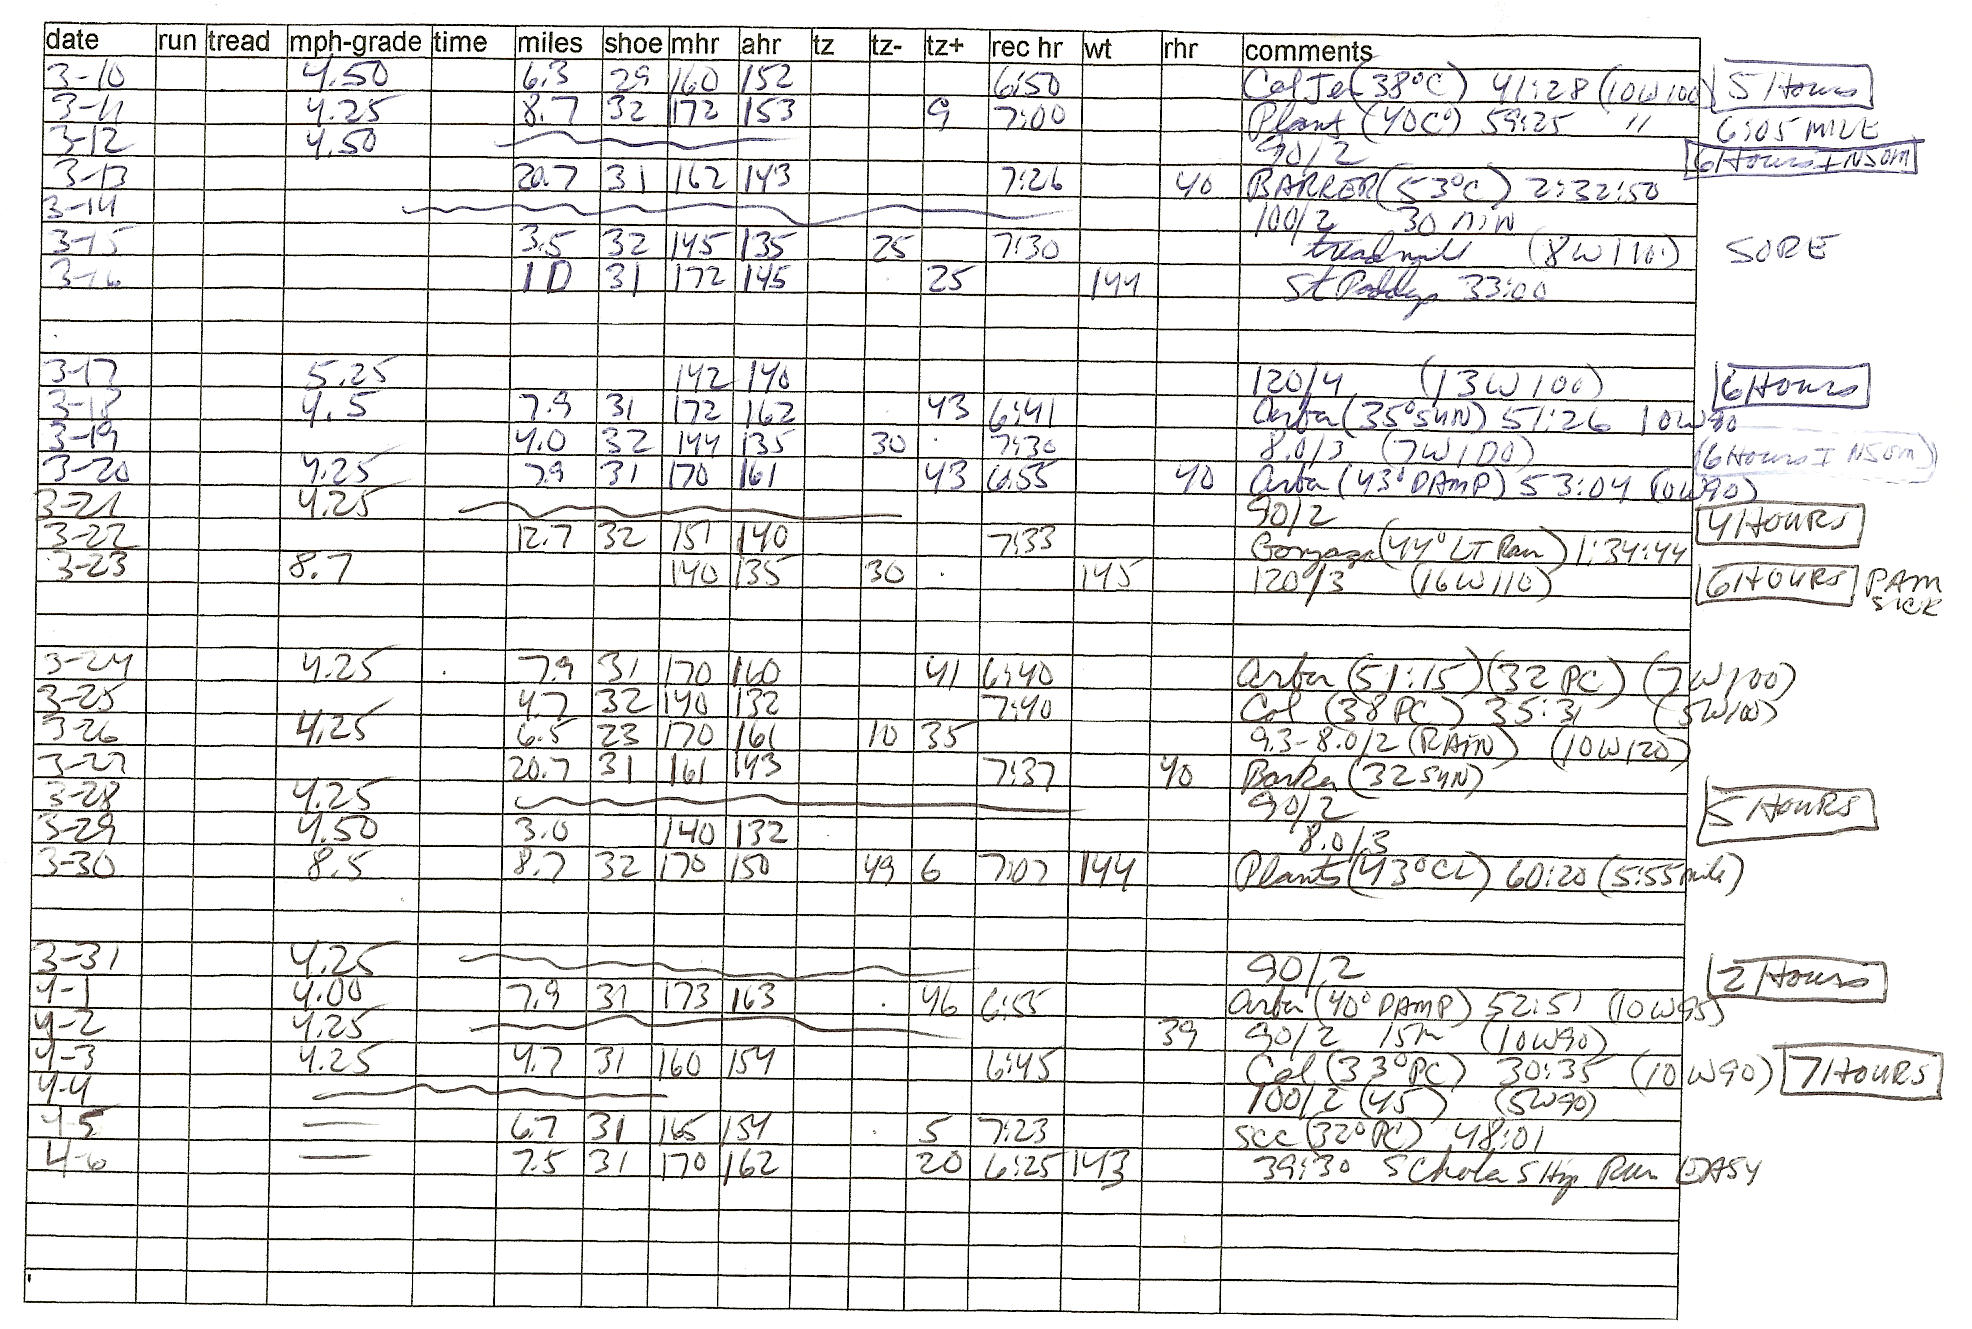 date run tread mph-grade time miles shoe mhr ahr tz tz- tz+ rec hr wt rhr comments
3-10 4.50 6.3 29 160 152 6:50 (38°C) 41:28 (10W100) 5 Hours
3-11 4.25 8.7 32 172 153 9 7:00 Plant (40C°) 59:25 " 6:05 MILE
3-12 4.50 90/2 6 Hours INSOM
3-13 20.7 31 162 143 7:26 40 BARKER (53°C) 2:32:50
3-14 100/2 30 MIN
3-15 3.5 32 145 135 25 7:30 treadmill (8W110) SORE
3-16 10 31 172 145 25 144 St Paddys 33:00
3-17 5.25 142 140 120/4 (13W100) 6 Hours
3-18 4.5 7.9 31 172 162 43 6:41 Arbor (35° SUN) 51:26 10W90
3-19 4.0 32 144 135 30 7:30 8.0/3 (7W100) (6 Hours INSOM)
3-20 4.25 7.9 31 170 161 43 6:55 40 Arbor (43° DAMP) 53:04 (10W90)
3-21 4.25 90/2 4 HOURS
3-22 12.7 32 151 140 7:33 (44° LT Rain) 1:34:44
3-23 8.7 140 135 30 145 120/3 (16W110) 6 HOURS PAM SICK
3-24 4.25 7.9 31 170 160 41 6:40 Arbor (51:15) (32 PC) (7W100)
3-25 4.7 32 140 132 7:40 Cal (38 PC) 35:31 (5W100)
3-26 4.25 6.5 23 170 161 10 35 9.3-8.0/2 (RAIN) (10W120)
3-27 20.7 31 161 143 7:37 40 Barker (32 SUN)
3-28 4.25 90/2 5 HOURS
3-29 4.50 3.0 140 132 8.0/3
3-30 8.5 8.7 32 170 150 49 6 7:07 144 Plants (43°CL) 60:20 (5:55 mile)
3-31 4.25 90/2 2 Hours
4-1 4.00 7.9 31 173 163 46 6:55 Arbor (40° DAMP) 52:51 (10W95)
4-2 4.25 39 90/2 15m (10W90)
4-3 4.25 4.7 31 160 154 6:45 Cal (33°PC) 30:35 (10W90) 7 HOURS
4-4 100/2 (45) (5W90)
4-5 — 6.7 31 165 154 5 7:23 SCC (32°PC) 48:01
4-6 — 7.5 31 170 162 20 6:25 143 39:30 Scholarship Run EASY